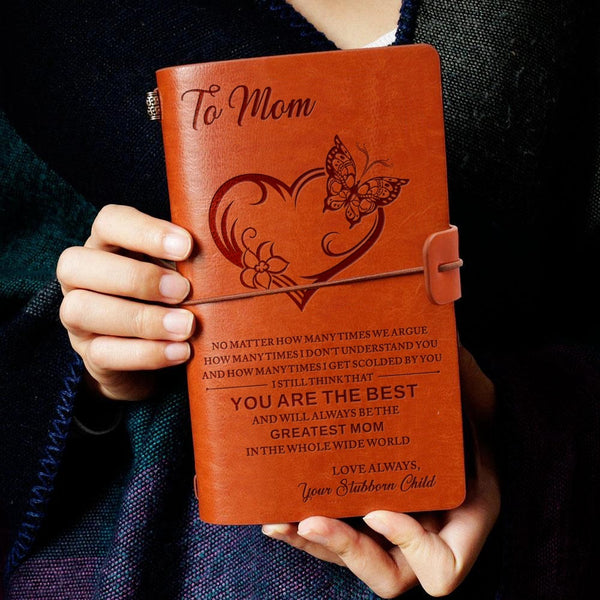 To Mom
NO MATTER HOW MANY TIMES WE ARGUE
HOW MANY TIMES I DON'T UNDERSTAND YOU
AND HOW MANY TIMES I GET SCOLDED BY YOU
I STILL THINK THAT
YOU ARE THE BEST
AND WILL ALWAYS BE THE
GREATEST MOM
IN THE WHOLE WIDE WORLD
LOVE ALWAYS,
Your Stubborn Child